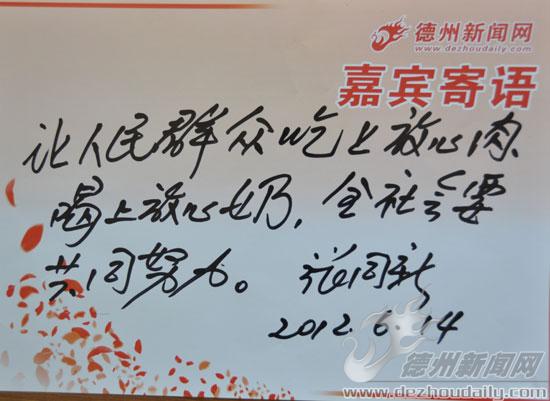 德州新闻网
www.dezhoudaily.com
嘉宾寄语
让人民群众吃上放心肉
喝上放心奶,全社会要
共同努力。
2012.6.14
德州新闻网
www.dezhoudaily.com